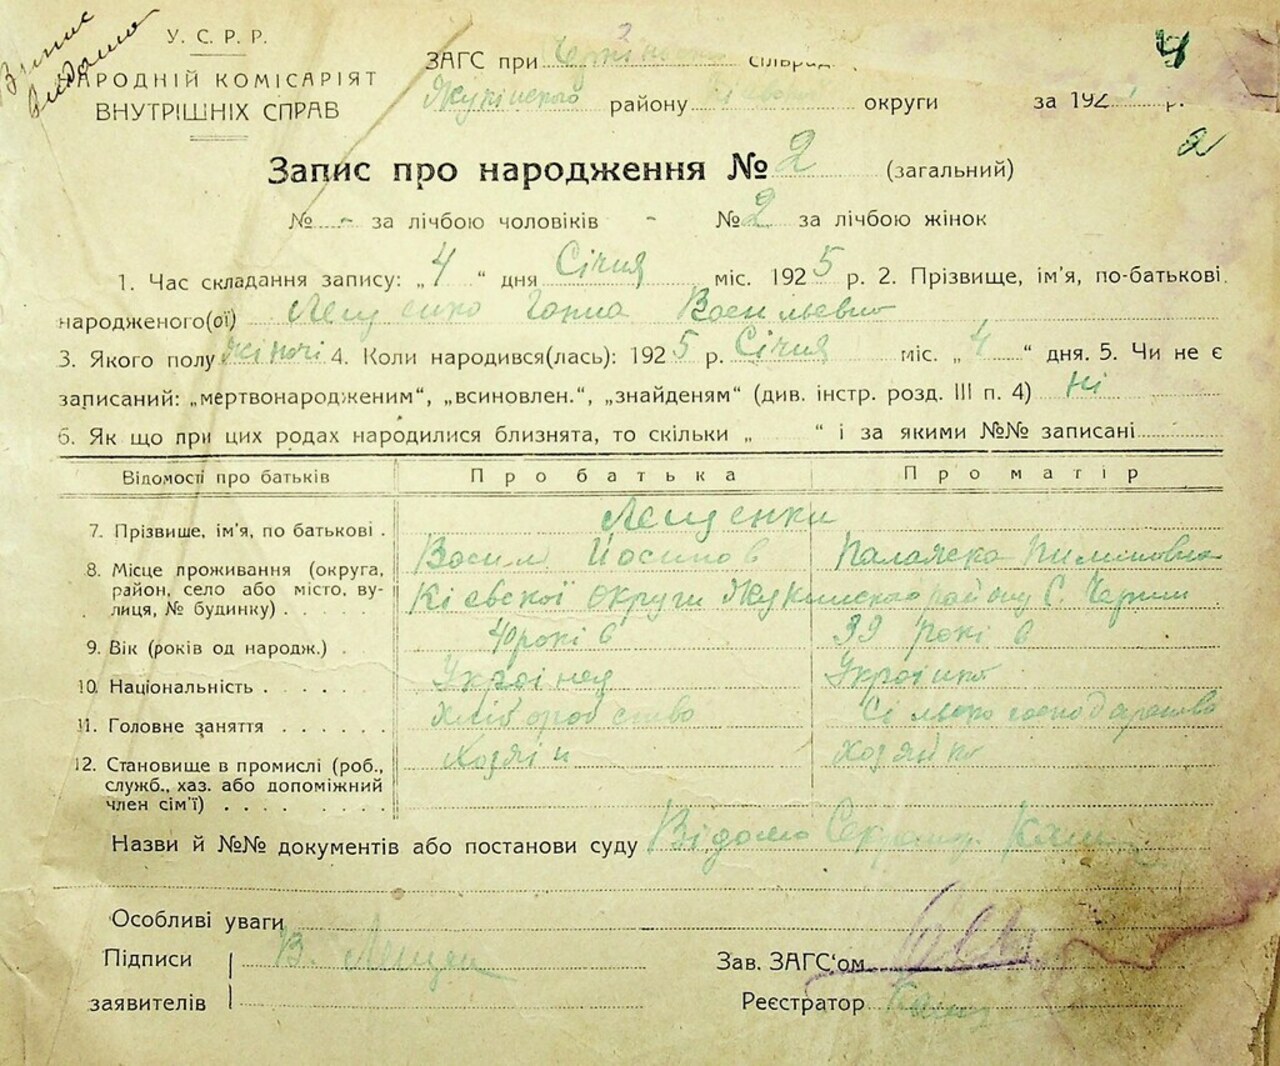 Випис
видано
У. С. Р. Р.
НАРОДНІЙ КОМІСАРІЯТ
ВНУТРІШНІХ СПРАВ
ЗАГС при Сільраді
Жукінского району округи за 192 р.
4
2
Запис про народження № 2 (загальний)
№ - за лічбою чоловіків - № 2 за лічбою жінок
1. Час складання запису: „4“ дня Січня міс. 1925 р. 2. Прізвище, ім'я, по-батькові
народженого(ої) Лещенко Ганна Васильевна
3. Якого полу жіночі 4. Коли народився(лась): 1925 р. Січня міс. „4“ дня. 5. Чи не є
записаний: „мертвонародженим“, „всиновлен.“, „знайденям“ (див. інстр. розд. III п. 4) Ні
6. Як що при цих родах народилися близнята, то скільки „ “ і за якими №№ записані
Відомості про батьків Про батька Про матір
7. Прізвише, ім'я, по батькові . Лещенки
Васил Йосипов Палажка Пилиповна
8. Місце проживання (округа,
район, село або місто, ву-
лиця, № будинку) . . . . Кіевскої округи Жукинскаго району С.
9. Вік (років од народж.) . 40 років 39 років
10. Національність . . . . . . Українец Українка
11. Головне заняття . . . . . . Хліборобство Сільско господарство
12. Становище в промислі (роб.,
служб., хаз. або допоміжний
член сім'ї) . . . . . . . . Хозяін Хозяйка
Назви й №№ документів або постанови суду Відомо Секретар.
Особливі уваги
Підписи В. Лещен
заявителів
Зав. ЗАГС'ом
Реєстратор